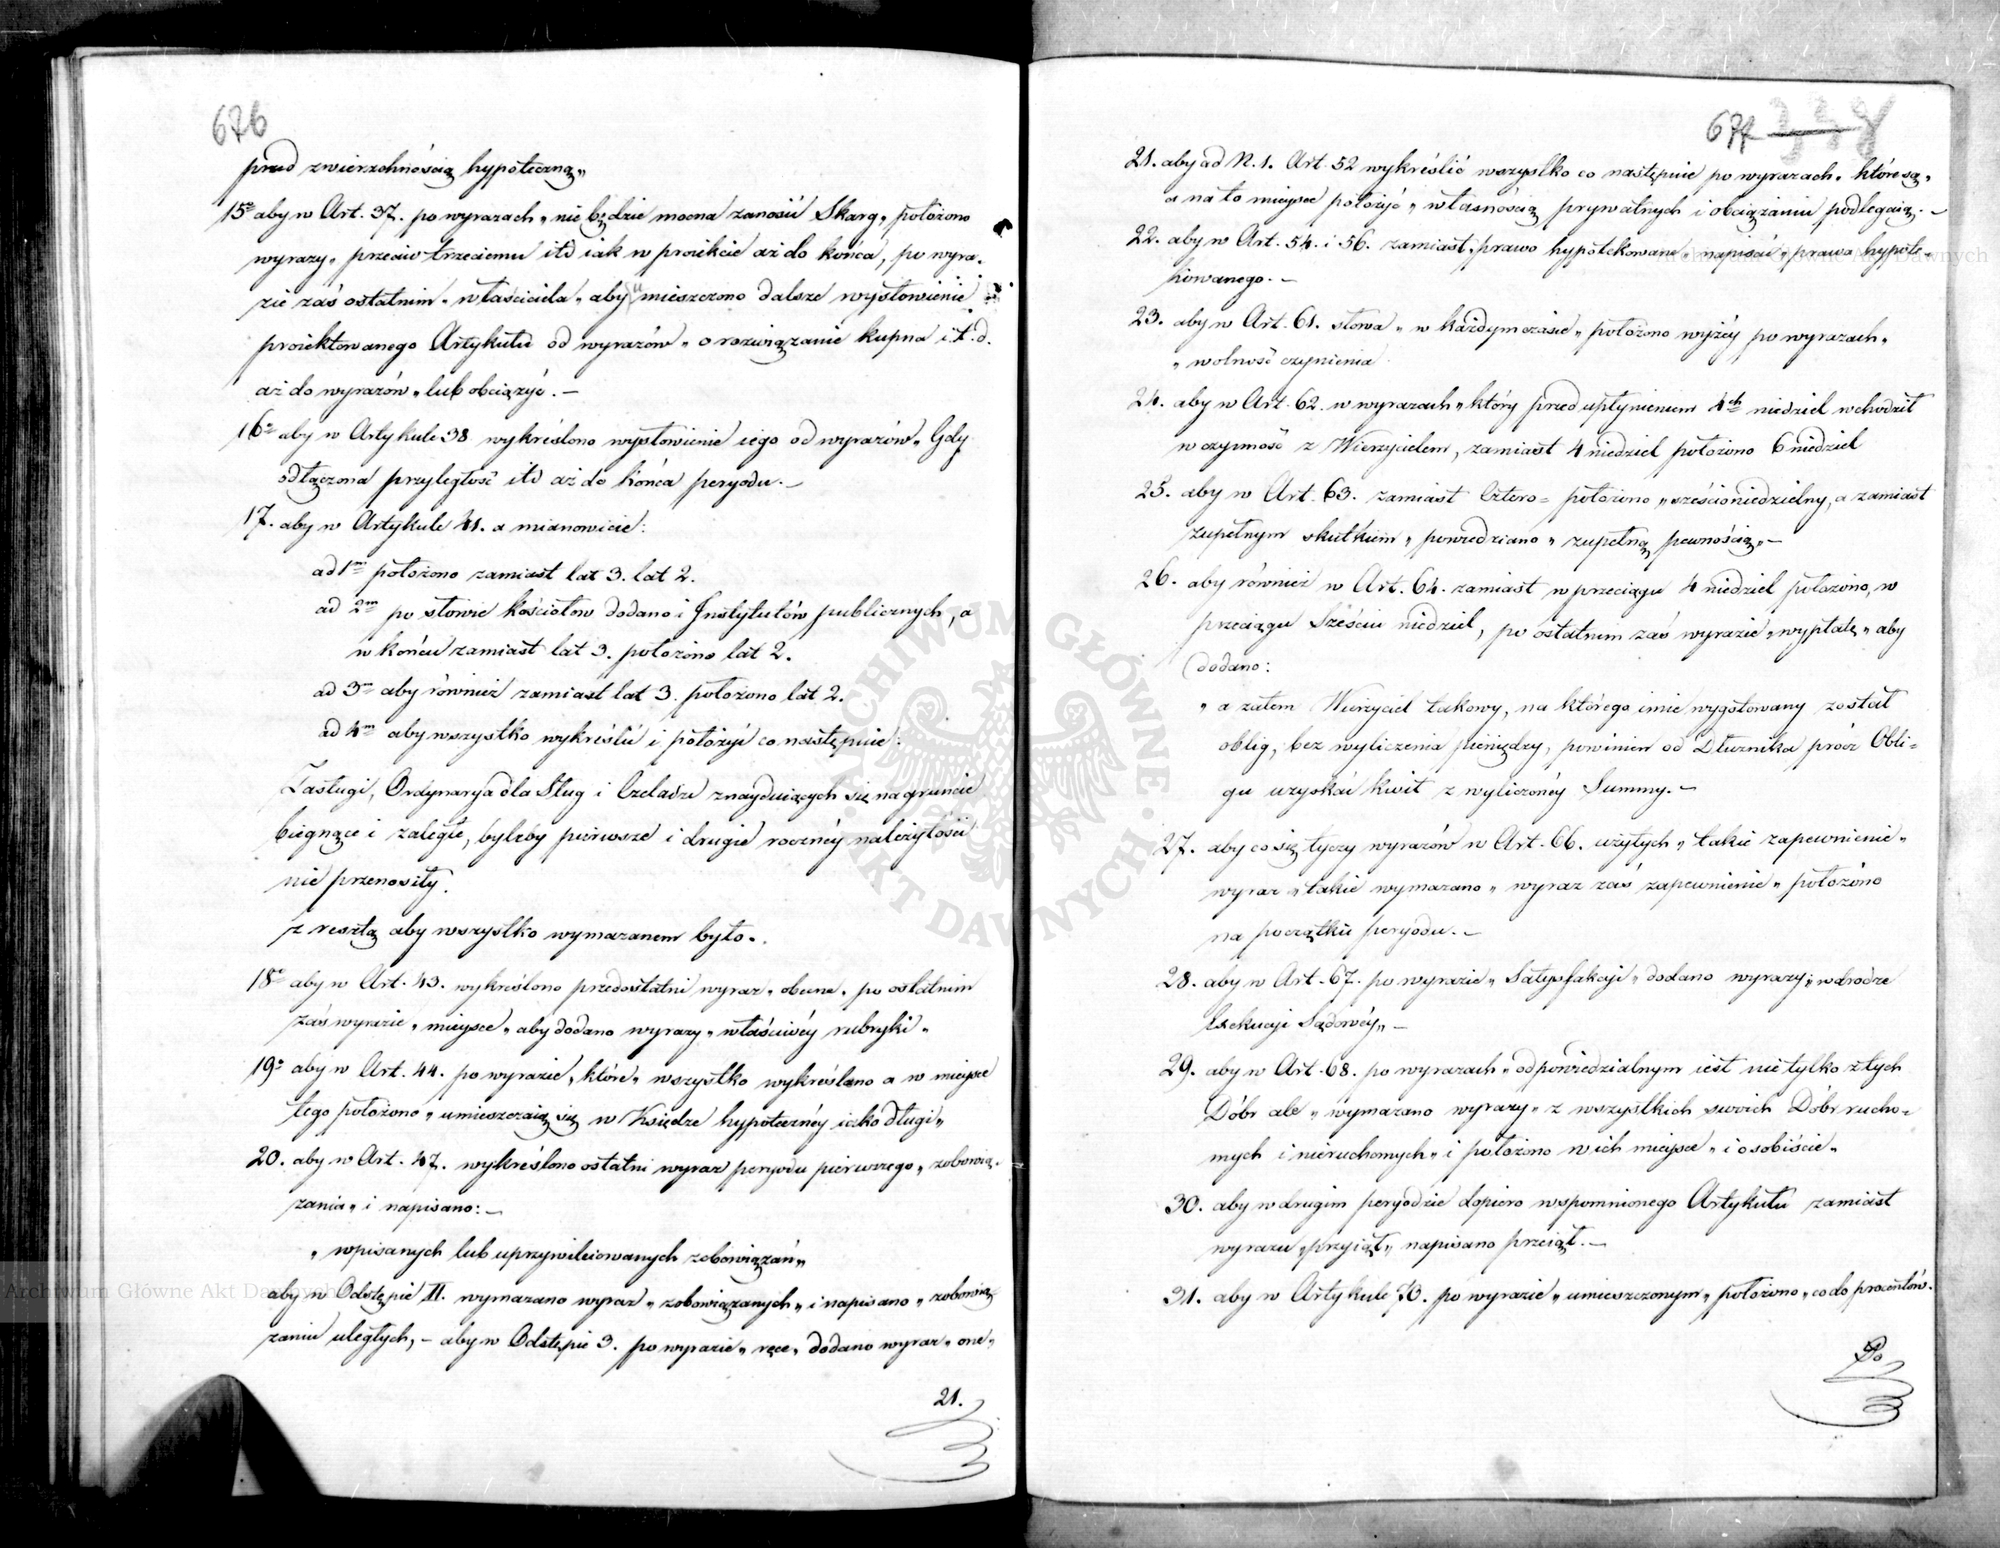 676
przed zwierzchnością hypoteczną„
15o aby w Art. 37. po wyrazach „nie będzie mocna zanosić Skarg„ położono
wyrazy„ przeciw trzeciemu itd iak w proiekcie aż do końca, po wyra-
zie zaś ostatnim „właściciela„ aby umieszczono dalsze wysłowienie
proiektowanego Artykułu od wyrazów „o rozwiązanie kupna i t. d.
aż do wyrazów „lub obciążyć. –
16o aby w Artykule 38 wykreślono wysłowienie iego od wyrazów „Gdy
odłączona przyległość itd aż do końca peryodu. –
17. aby w Artykule 41. a mianowicie:
ad 1m położono zamiast lat 3. lat 2.
ad 2m po słowie kościołów dodano i Instytutów publicznych, a
w końcu zamiast lat 3. położono lat 2.
ad 3m aby również zamiast lat 3. położono lat 2.
ad 4m aby wszystko wykreślić i położyć co następuie:
Zasługi, Ordynarya dla Sług i Czeladzi znayduiących się na gruncie
biegnące i zaległe, byleby pierwsze i drugie rocznéy należytości
nie przenosiły.
z resztą aby wszystko wymazanem było.
18o aby w Art. 43. wykreślono przedostatni wyraz „obecne„ po ostatnim
zaś wyrazie „mieysce„ aby dodano wyrazy „właściwéy rubryki„
19o aby w Art. 44. po wyrazie „które„ wszystko wykreślono a w mieysce
tego położono „umieszczaią się w Księdze hypotecznéy iako długi„
20. aby w Art. 47. wykreślono ostatni wyraz peryodu pierwszego „zobowią-
zania„ i napisano: –
„wpisanych lub uprzywileiowanych zobowiązań„
aby w Odstępie II. wymazano wyraz „zobowiązanych„ i napisano „zobowią-
zaniu uległych, – aby w Odstępie 3. po wyrazie „ręce„ dodano wyraz „one„
21.
677 338
21. aby ad N. 1. Art. 52 wykreślić wszystko co następuie po wyrazach „które są„
a na to mieysce położyć „własnością prywatnych i obciążaniu podlegaią. –
22. aby w Art. 54. i 56. zamiast „prawo hypotekowane„ napisać „prawa hypote-
kowanego. –
23. aby w Art. 61. słowa „w każdym czasie„ położono wyżéy po wyrazach„
„wolność czynienia
24. aby w Art. 62. w wyrazach „który przed upłynieniem 4ch niedziel wchodził
w czynność z Wierzycielem, zamiast 4 niedziel położono 6 niedziel
25. aby w Art. 63. zamiast Cztero= położono „sześcioniedzielny, a zamiast
zupełnym skutkiem „powiedziano „zupełną pewnością„ –
26. aby również w Art. 64. zamiast w przeciągu 4 niedziel położono, w
przeciągu Sześciu niedziel, po ostatnim zaś wyrazie „wypłatę„ aby
dodano:
„a zatem Wierzyciel takowy, na którego imie wygotowany został
oblig, bez wyliczenia pieniędzy, powinien od Dłużnika prócz Obli-
gu uzyskać kwit z wyliczonéy Summy. –
27. aby co się tyczy wyrazów w Art. 66. użytych „takie zapewnienie„
wyraz „takie wymazano„ wyraz zaś zapewnienie„ położono
na początku peryodu. –
28. aby w Art. 67. po wyrazie „Satysfakcyi„ dodano wyrazy „w drodze
Exekucyi Sądowéy„ –
29. aby w Art. 68. po wyrazach „odpowiedzialnym iest nie tylko z tych
Dóbr ale „wymazano wyrazy „z wszystkich swoich Dóbr rucho-
mych i nieruchomych„ i położono w ich mieysce „i osobiście„
30. aby w drugim peryodzie dopiero wspomnionego Artykułu zamiast
wyrazu „przyiąt„ napisano przeiąt. –
31. aby w Artykule 73. po wyrazie „umieszczonym„ położono „co do procentów.
Po
Archiwum Główne Akt Dawnych
Archiwum Główne Akt Dawnych
ARCHIWUM GŁÓWNE AKT DAWNYCH